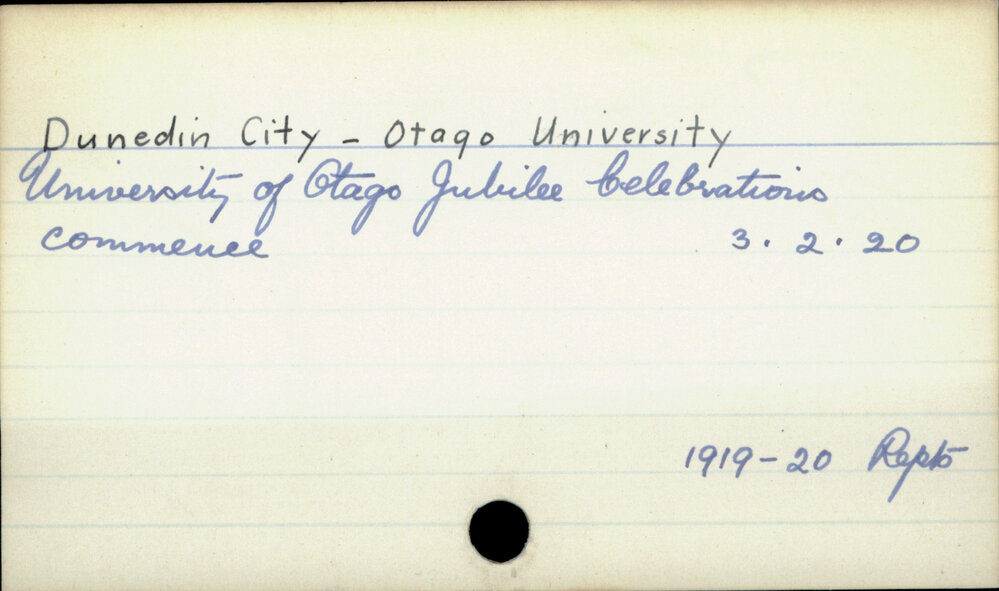 Dunedin City - Otago University
University of Otago Jubilee Celebrations
commence 3.2.20
1919-20 Repts